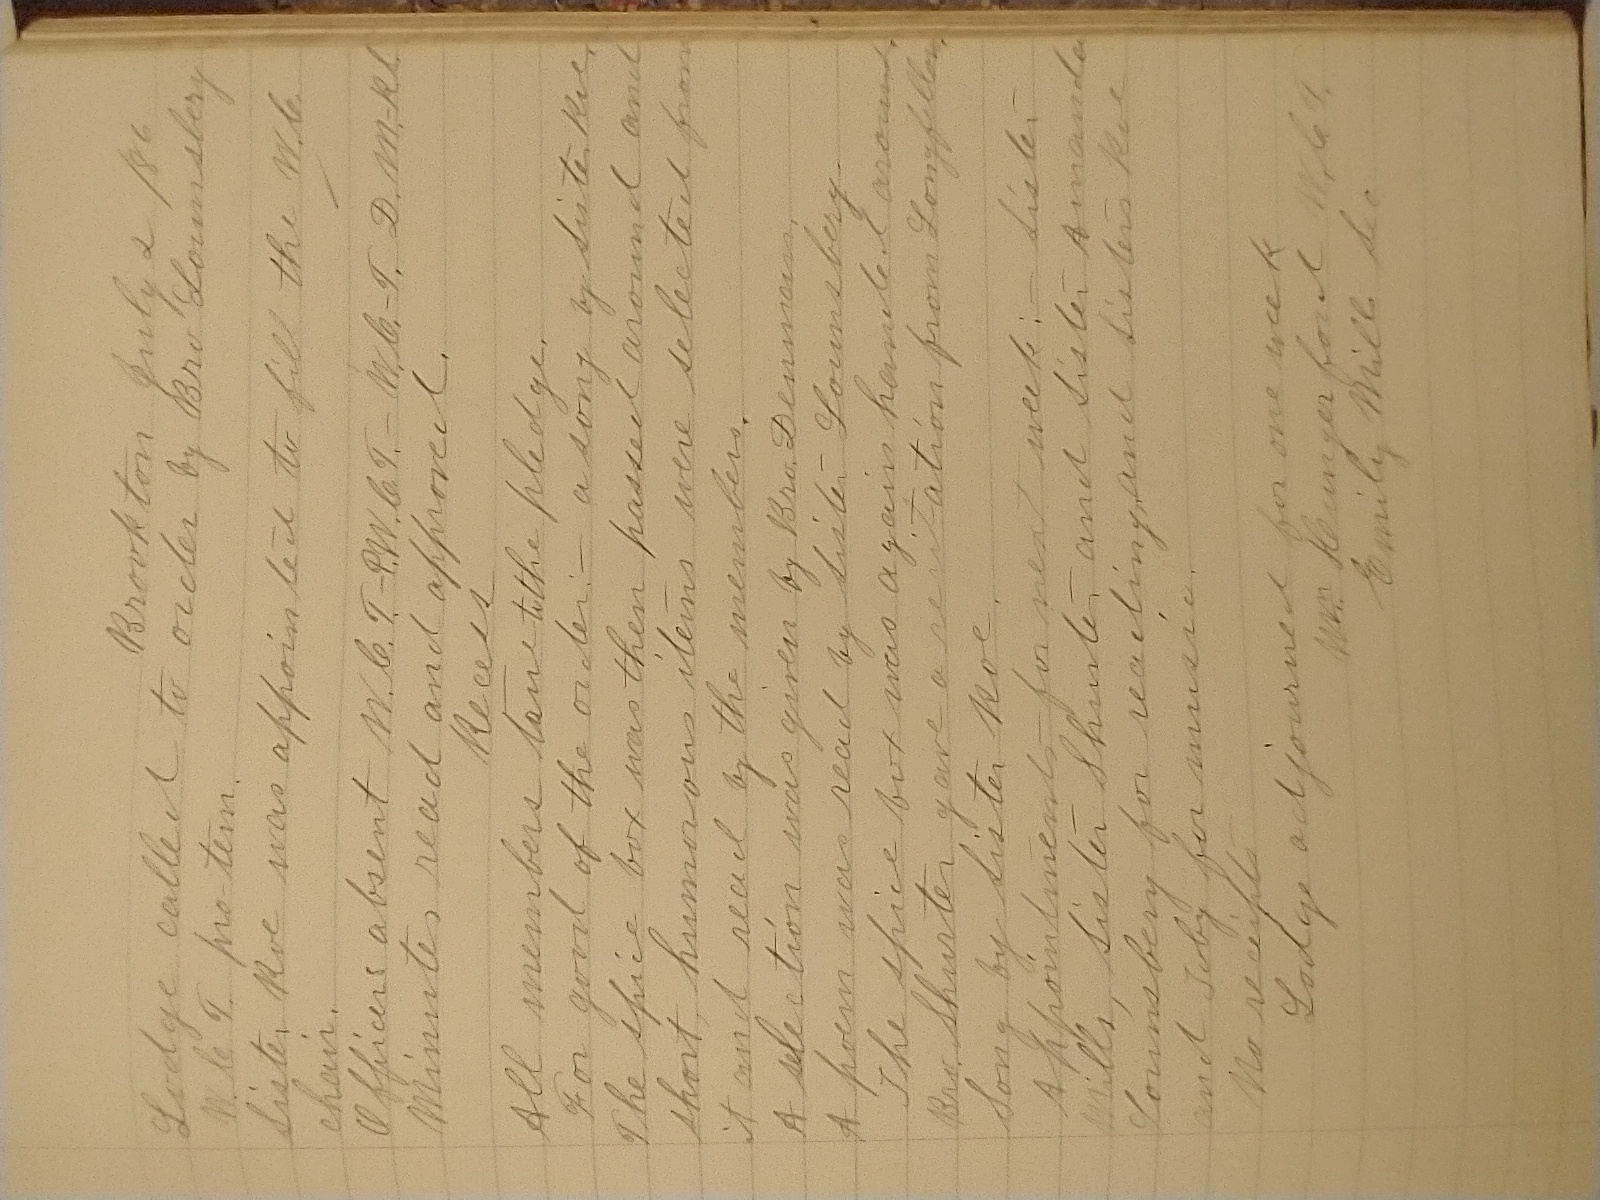 Brookton July 2 186
Lodge called to order by Bro Lounsbery
W.C.T. pro-tem.
Sister Roe was appointed to fill the W.C.
chair.
Officers absent W.C.T.-P.W.C.T.- W.C.-T. D.M.-R.S.
Minutes read and approved.
Recess
All members to the pledge.
For good of the order:- a song by sister Roe,
The spice box was then passed around and
short, humorous items were selected from
it and read by the members.
A selection was given by Bro. Denman.
A poem was read by sister Lounsbery.
The spice box was again handed around.
Bro. Shurter gave a recitation from Longfellow,
Song by sister Roe.
Appointments for next week:- sister
Mills, sister Shurter, and sister Amanda
Lounsbery for reading, and sisters Roe
and Toby for music.
No receipts
Lodge adjourned for one week
Wm Hungerford W.C.T.
Emily Mills Sec.